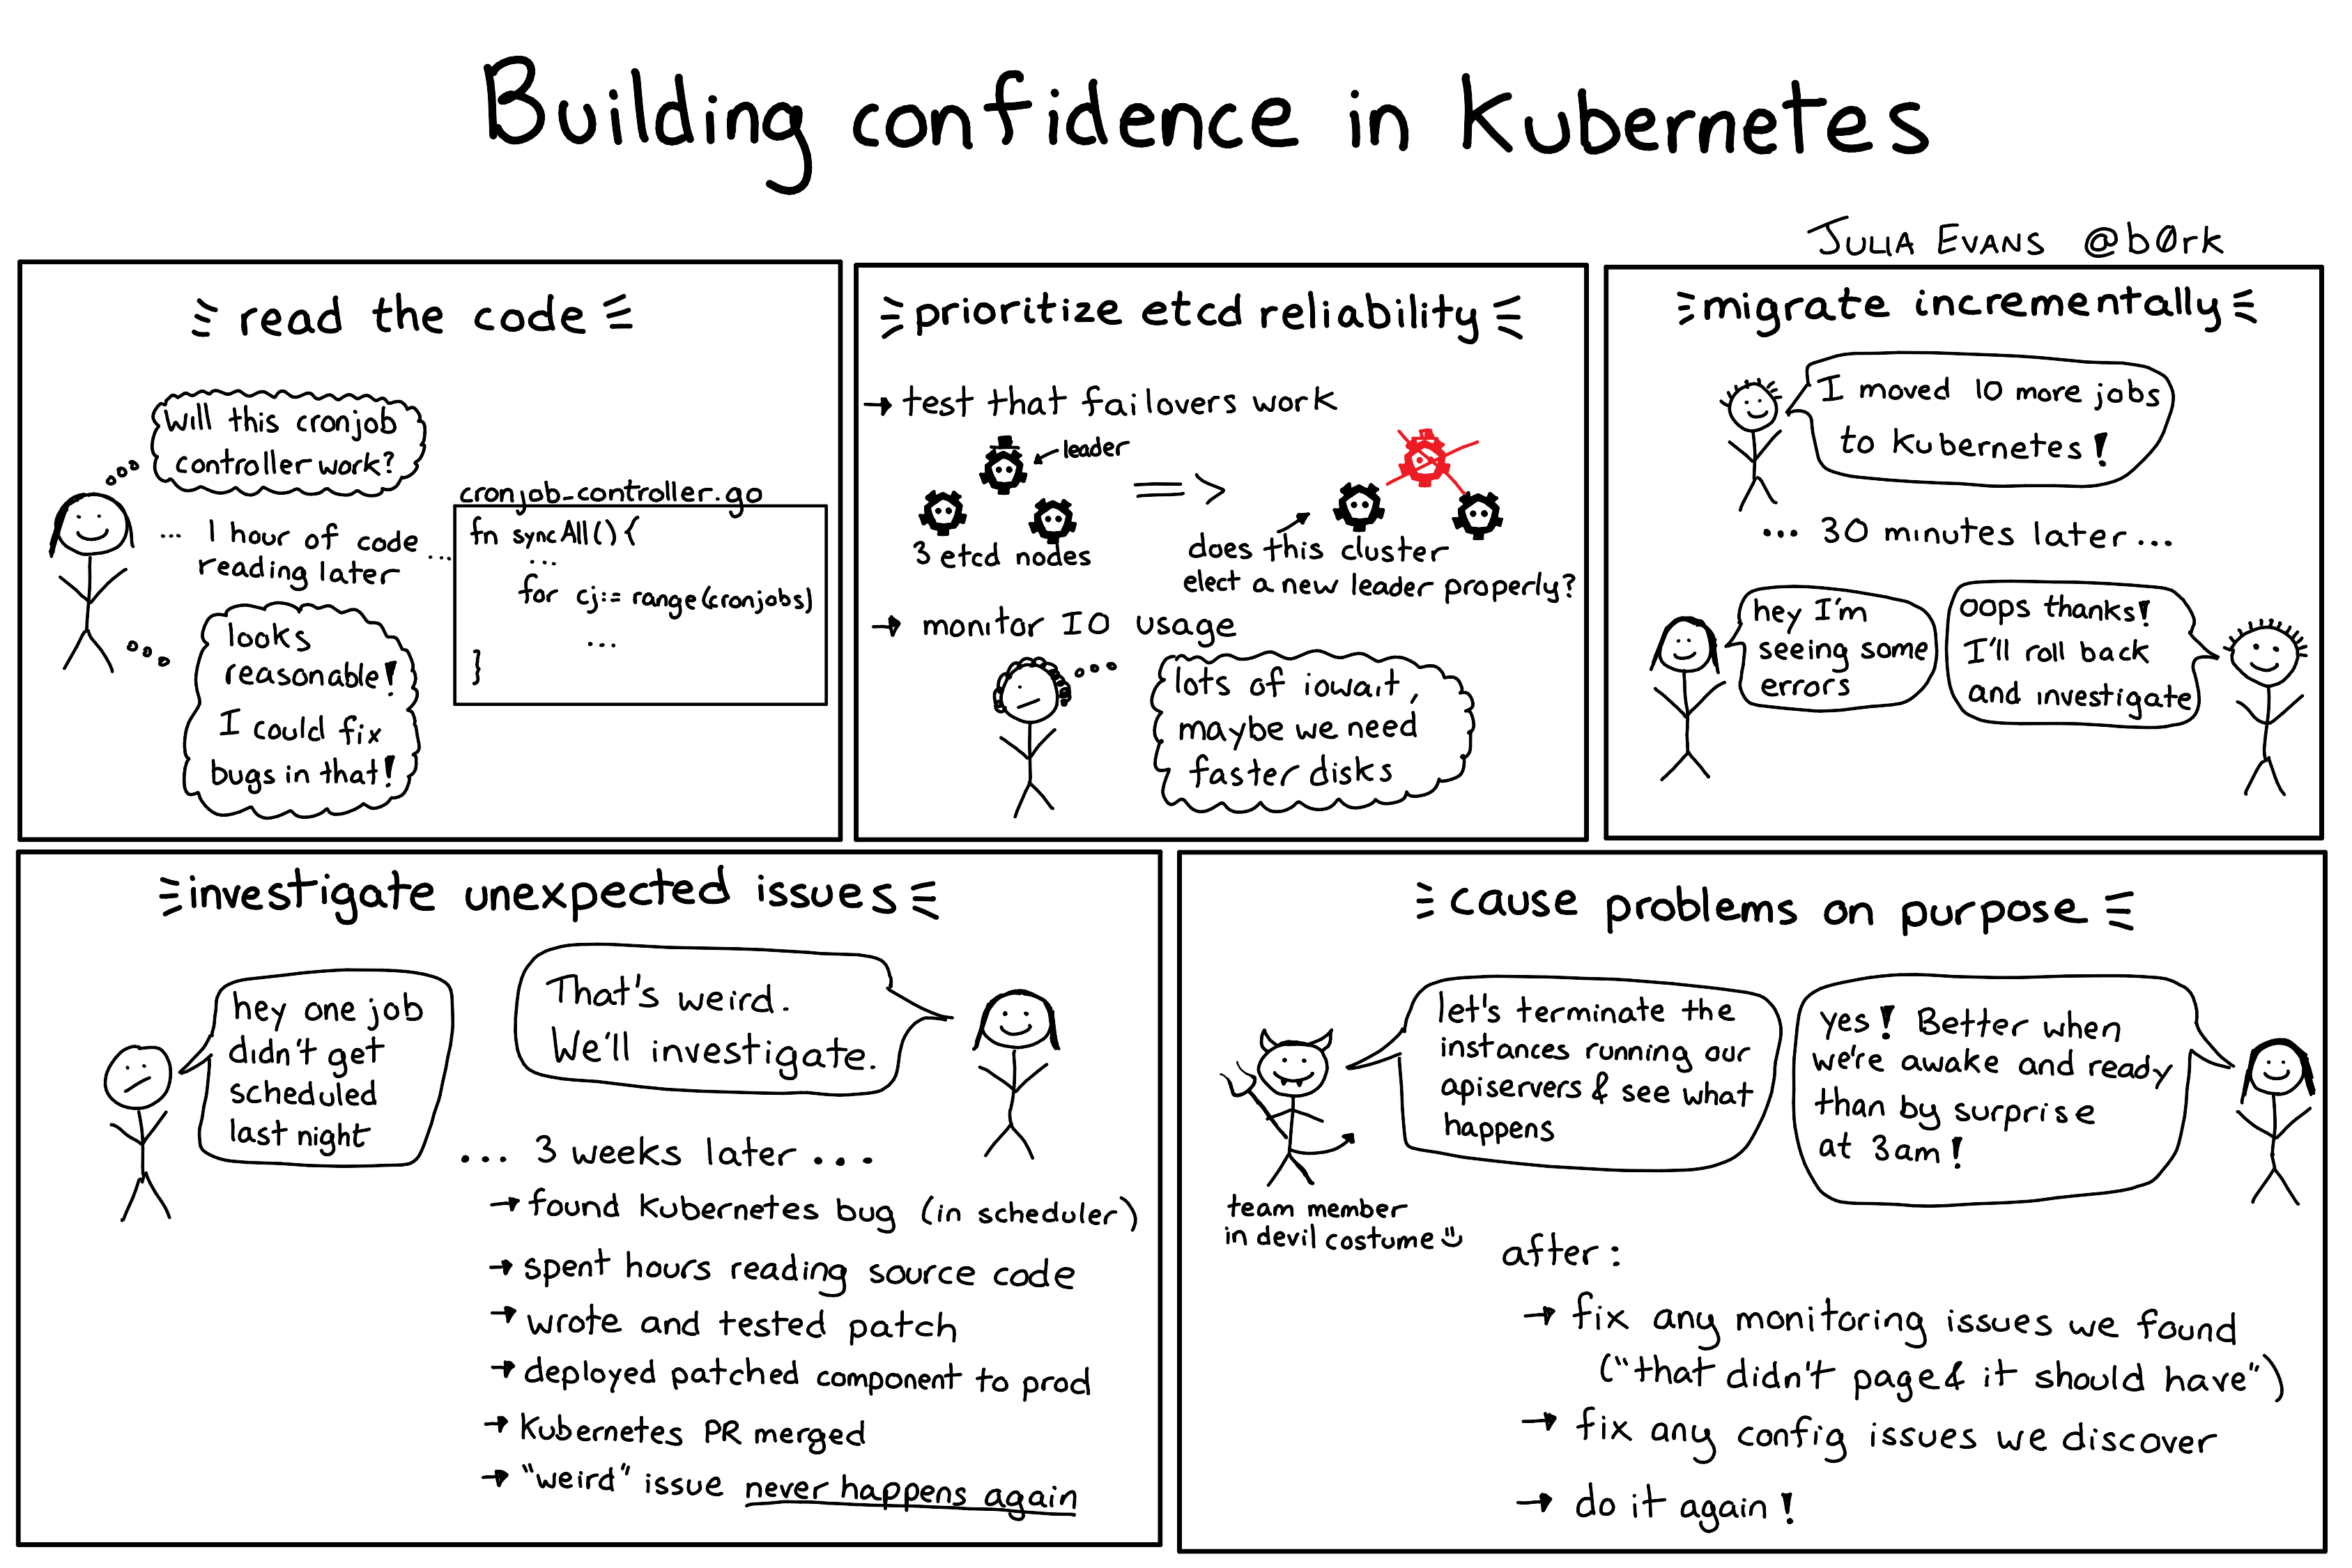 Building confidence in Kubernetes
JULIA EVANS @b0rk
read the code
will this cronjob
controller work?
... 1 hour of code
reading later ...
looks
reasonable!
I could fix
bugs in that!
cronjob-controller.go
fn syncAll() {
...
for cj := range(cronjobs)
...
}
prioritize etcd reliability
→ test that failovers work
leader
3 etcd nodes
=>
does this cluster
elect a new leader properly?
→ monitor IO usage
lots of iowait,
maybe we need
faster disks
migrate incrementally
I moved 10 more jobs
to Kubernetes!
... 30 minutes later...
hey I'm
seeing some
errors
oops thanks!
I'll roll back
and investigate
investigate unexpected issues
hey one job
didn't get
scheduled
last night
That's weird.
We'll investigate.
... 3 weeks later ...
→ found Kubernetes bug (in scheduler)
→ spent hours reading source code
→ wrote and tested patch
→ deployed patched component to prod
→ Kubernetes PR merged
→ "weird" issue never happens again
cause problems on purpose
let's terminate the
instances running our
apiservers & see what
happens
team member
in devil costume
yes! Better when
we're awake and ready
than by surprise
at 3am!
after:
→ fix any monitoring issues we found
("that didn't page & it should have")
→ fix any config issues we discover
→ do it again!